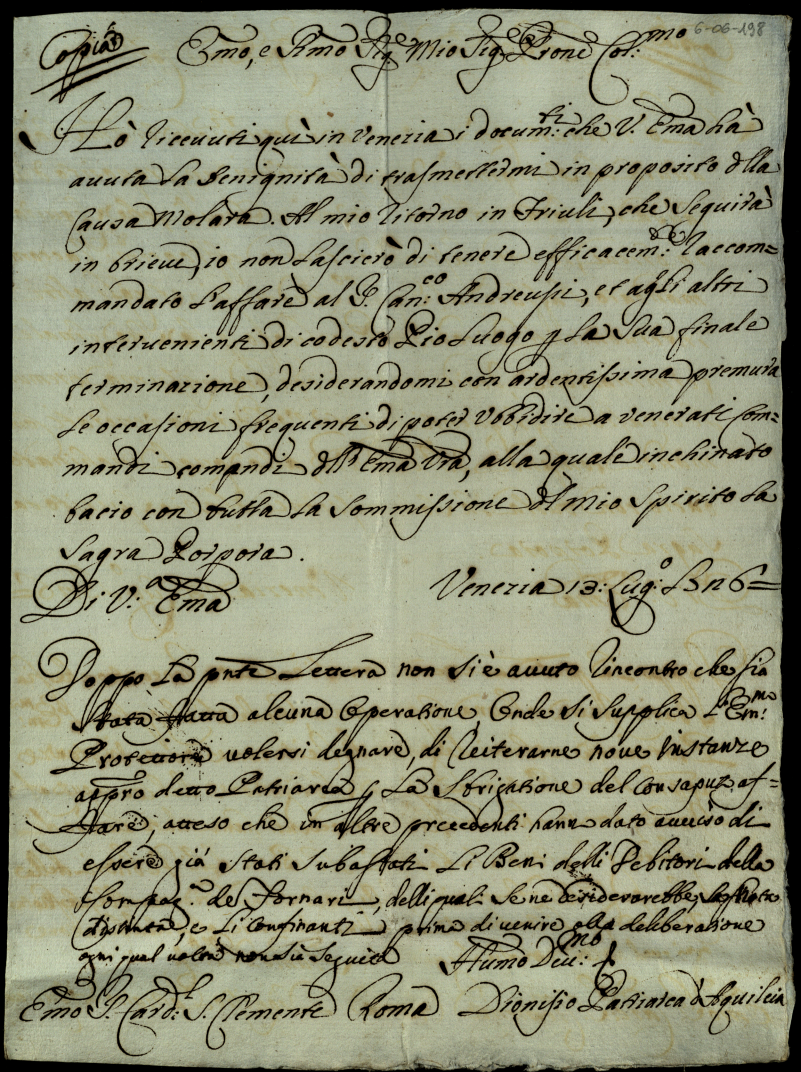 6-06-198
Copia
Emo, e Rmo Sig.e Mio Sig.e Prone Col:mo
Hò riceuuti quì in Venezia i docum:ti che V. Ema hà
auuta la benignità di trasmettermi in proposito dlla
Causa Molara. Al mio ritorno in Friuli, che seguirà
in brieue, io non lascierò di tenere efficacem:te raccom=
mandato l'affare al S. Can:co Andreussi, et agli altri
interuenienti di codesto Pio Luogo p la sua finale
terminazione, desiderandomi con ardentissima premura
le occasioni frequenti di poter vbbidire a venerati com=
mandi comandi dll' Ema Vra, alla quale inchinato
bacio con tutta la sommissione dl mio spirito la
sagra Porpora.
Di V:a Ema Venezia 13: Lug:o
Doppo la pnte Lettera non si è auuto rincontro che sia
stata fatta alcuna operatione, Onde si supplica l'Em:mo
Protettore volersi degnare, di reiterarne noue instanze
appro detto Patriarca p la sbrigatione del consaputo af=
fare, atteso che in altre precedenti hann dato auuiso di
essere già stati subastati li Beni delli Debitori della
Compag.a de Fornari, delli quali se ne desiderarebbe la nota
distinta, e li confinanti prima di venire alla deliberatione
ogni qual volta non sia seguita Humo Deu:mo S.
Emo S. Card:l S. Clemente Roma Dionisio Patriarca d'Aquileia